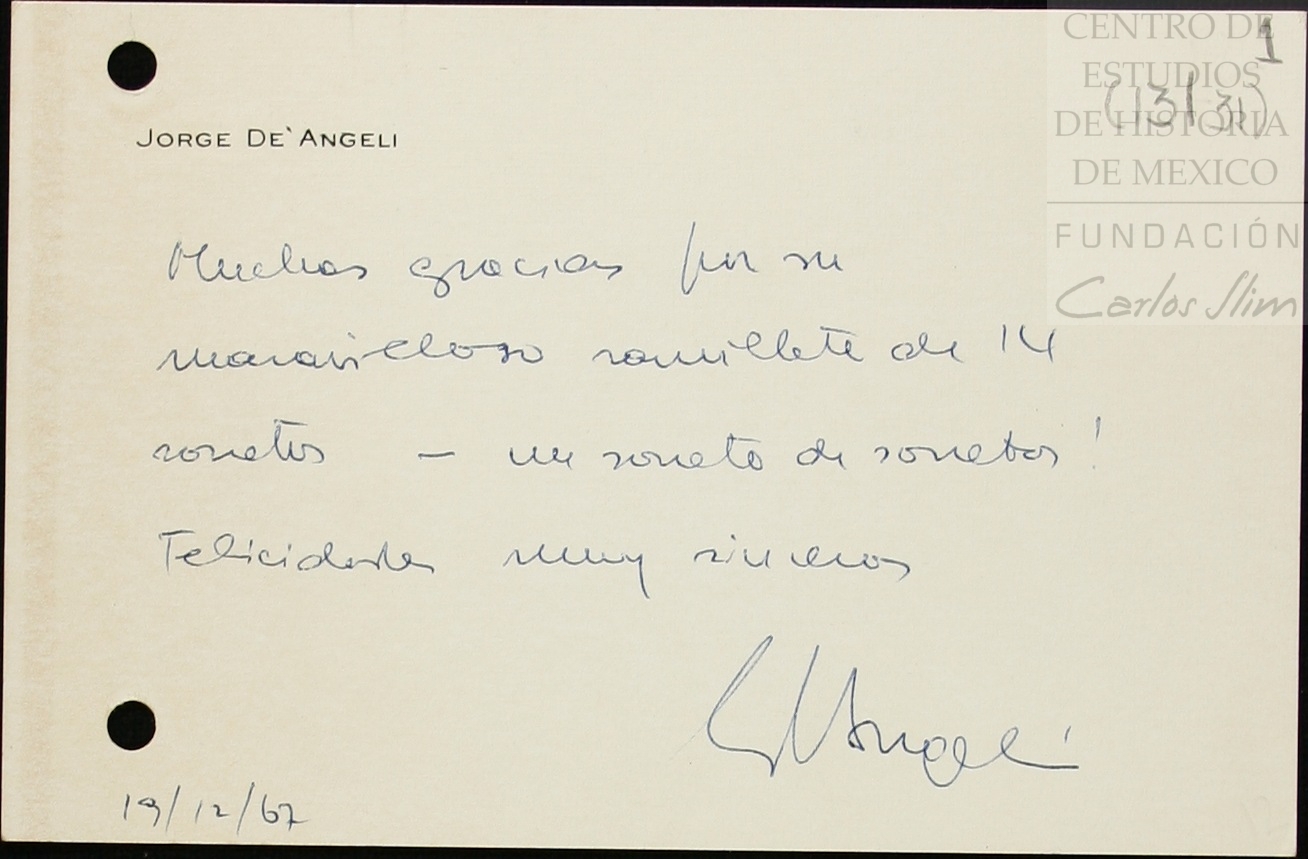 CENTRO DE
ESTUDIOS
DE HISTORIA
DE MEXICO
FUNDACIÓN
Carlos Slim
1
(13/31)
JORGE DE'ANGELI
Muchas gracias por su
maravilloso ramillete de 14
sonetos — un soneto de sonetos!
Felicidades muy sinceras
De'Angeli
19/12/67